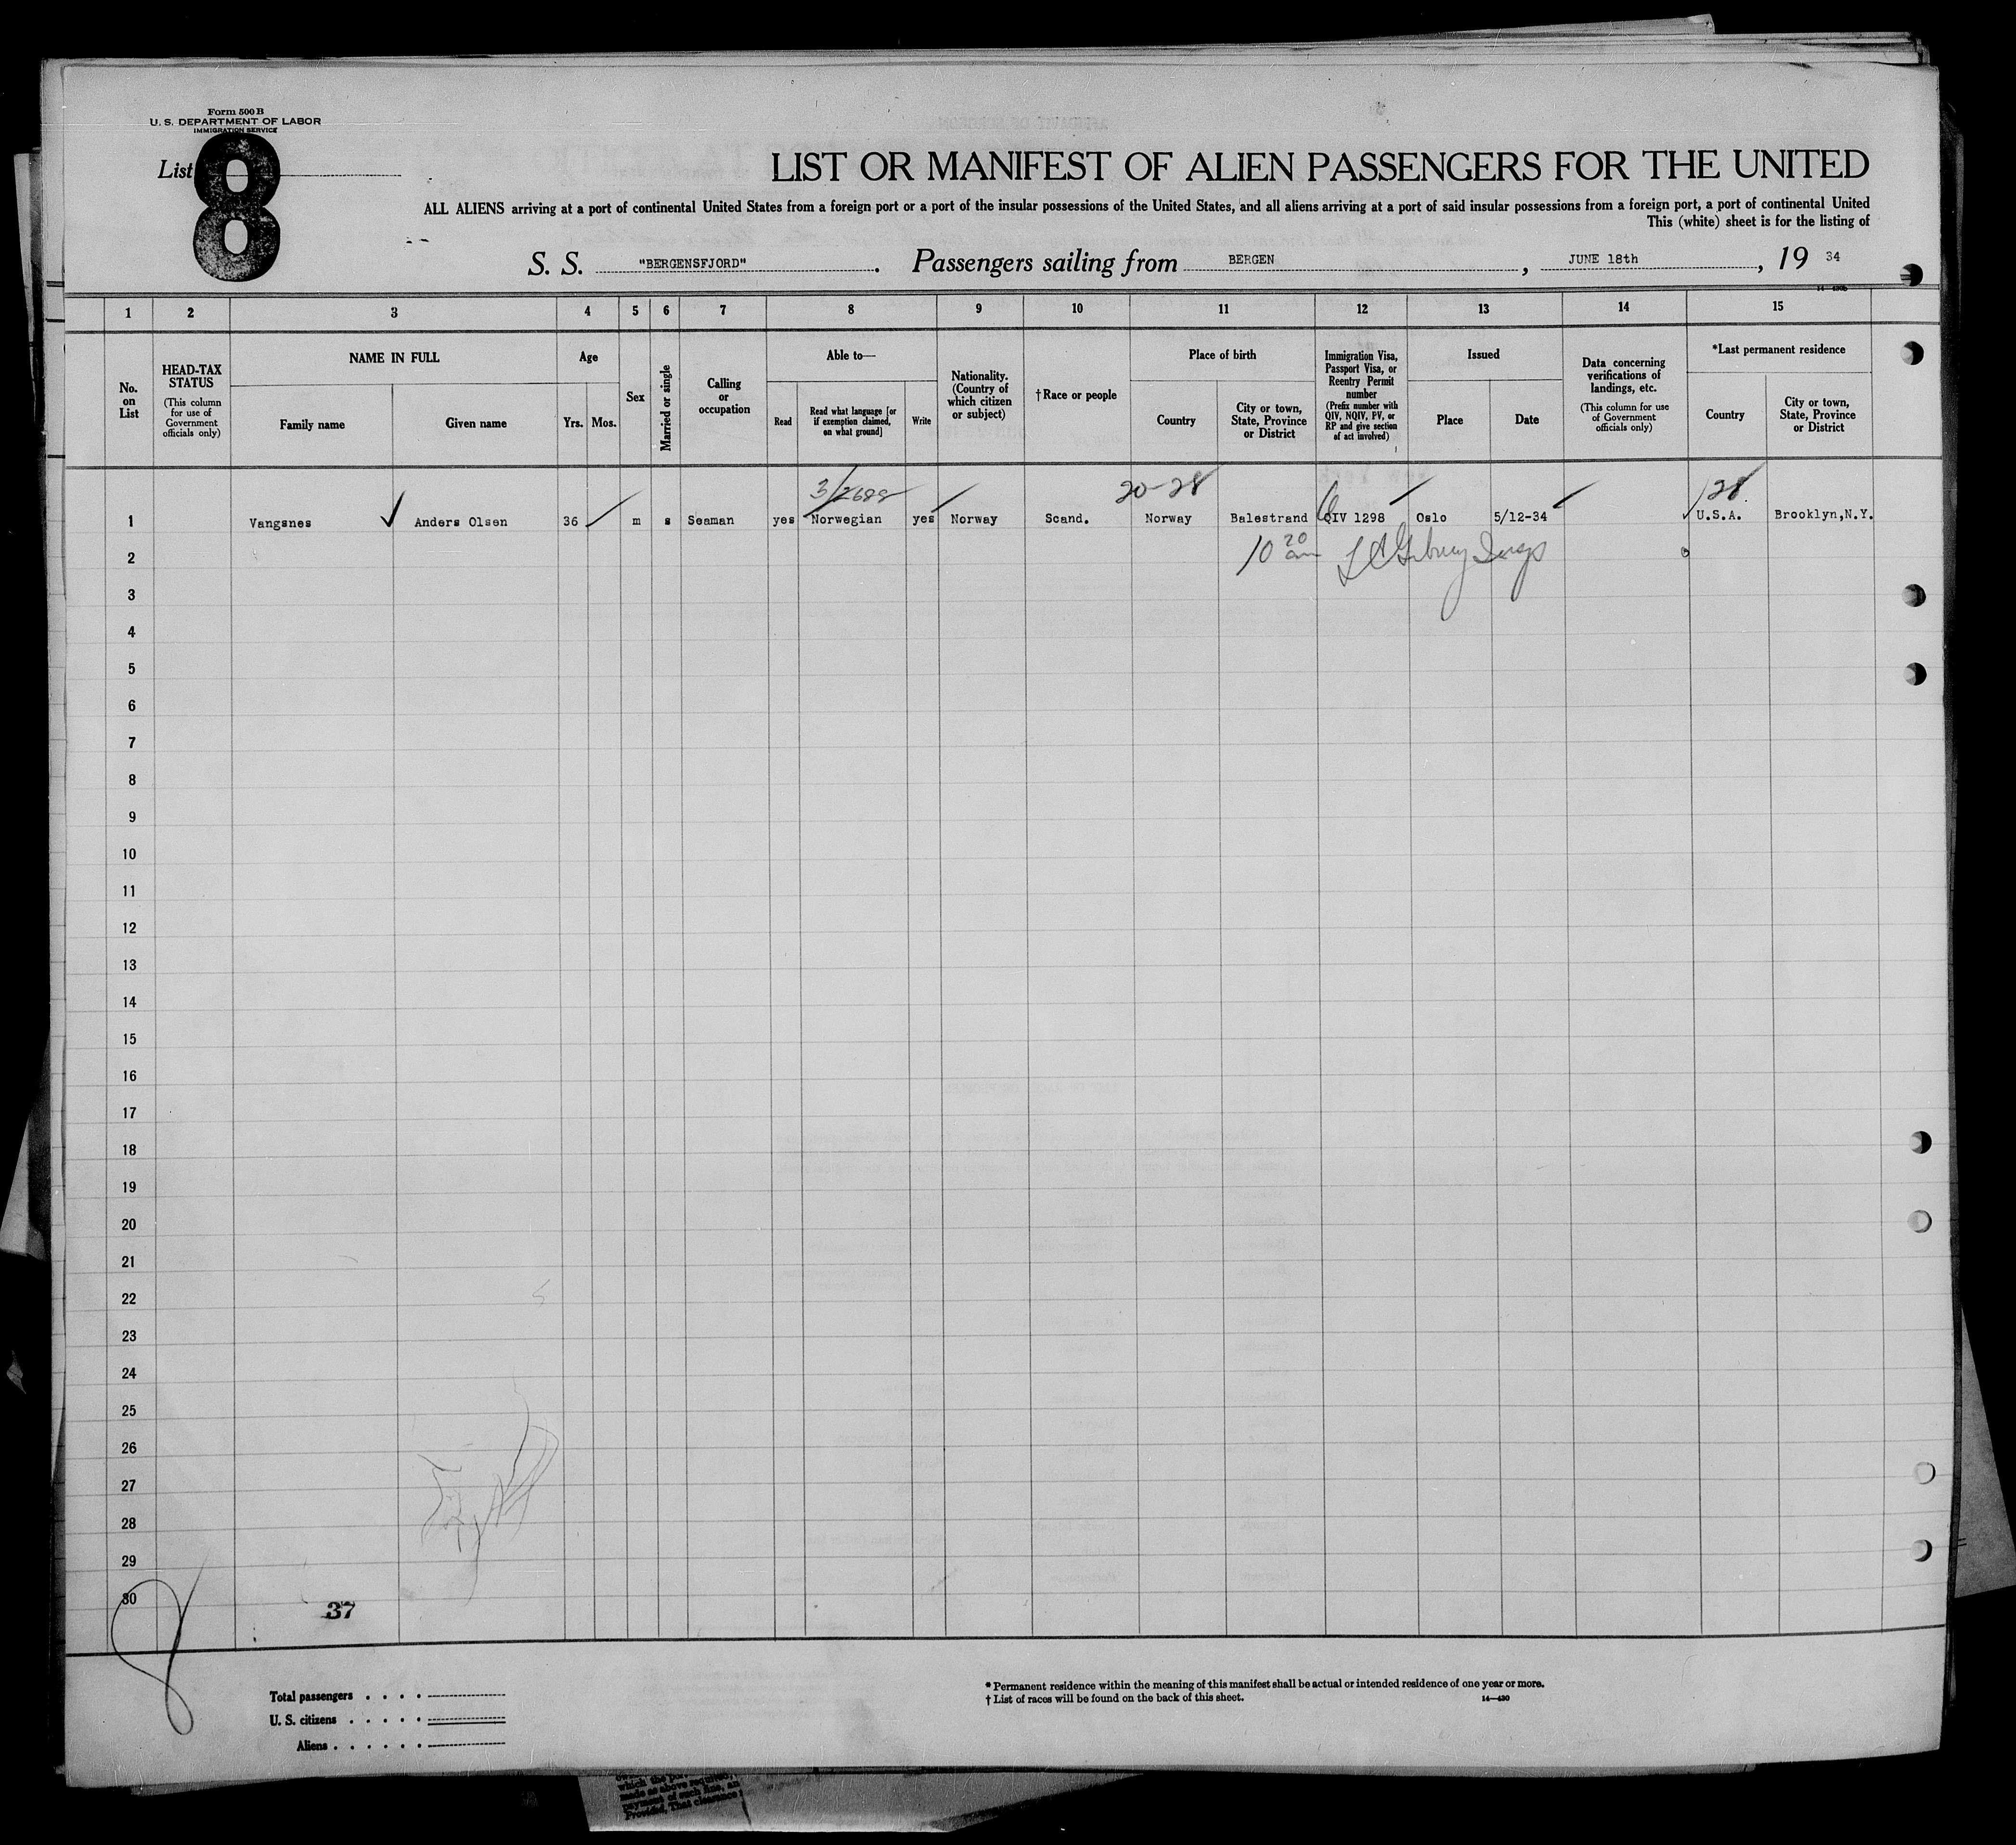 Form 500 B
U. S. DEPARTMENT OF LABOR
IMMIGRATION SERVICE
List 8
LIST OR MANIFEST OF ALIEN PASSENGERS FOR THE UNITED
ALL ALIENS arriving at a port of continental United States from a foreign port or a port of the insular possessions of the United States, and all aliens arriving at a port of said insular possessions from a foreign port, a port of continental United
This (white) sheet is for the listing of
S. S. "BERGENSFJORD". Passengers sailing from BERGEN, JUNE 18th, 19 34
14—430b
1 2 3 4 5 6 7 8 9 10 11 12 13 14 15
No. on List
HEAD-TAX STATUS (This column for use of Government officials only)
NAME IN FULL
Family name
Given name
Age
Yrs. Mos.
Sex
Married or single
Calling or occupation
Able to—
Read
Read what language [or if exemption claimed, on what ground]
Write
Nationality. (Country of which citizen or subject)
†Race or people
Place of birth
Country
City or town, State, Province or District
Immigration Visa, Passport Visa, or Reentry Permit number (Prefix number with QIV, NQIV, PV, or RP and give section of act involved)
Issued
Place
Date
Data concerning verifications of landings, etc. (This column for use of Government officials only)
*Last permanent residence
Country
City or town, State, Province or District
20-28 128
1 Vangsnes Anders Olsen 36 m s Seaman yes Norwegian yes Norway Scand. Norway Balestrand QIV 1298 Oslo 5/12-34 U.S.A. Brooklyn,N.Y.
10 20 am
2
3
4
5
6
7
8
9
10
11
12
13
14
15
16
17
18
19
20
21
22
23
24
25
26
27
28
29
30
37
8
Total passengers
U. S. citizens
Aliens
* Permanent residence within the meaning of this manifest shall be actual or intended residence of one year or more.
† List of races will be found on the back of this sheet. 14—430
which the por
made as above required,
payment of such fine, an
Provided, That clearance